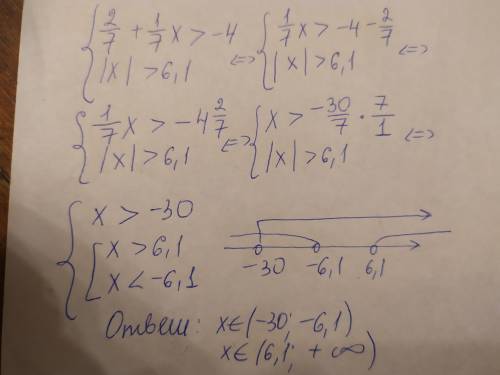 { 2/7 + 1/7 x > -4
|x| > 6,1 <=> { 1/7 x > -4 - 2/7
|x| > 6,1 <=>
{ 1/7 x > -4 2/7
|x| > 6,1 <=> { x > -30/7 · 7/1
|x| > 6,1 <=>
{ x > -30
[ x > 6,1
x < -6,1
-30 -6,1 6,1
Ответ: x∈(-30; -6,1)
x∈(6,1; +∞)